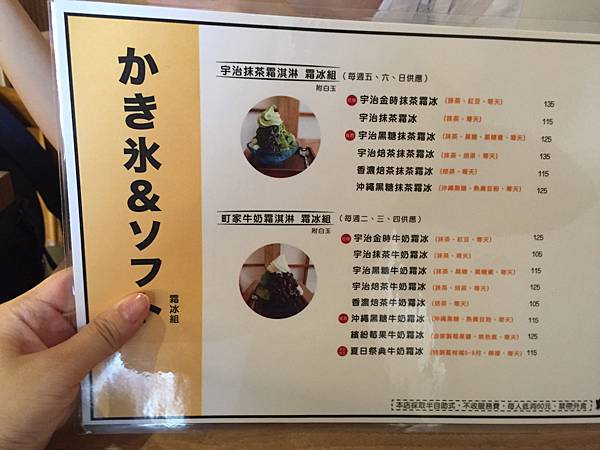 かき氷&ソフト
霜冰組
宇治抹茶霜淇淋 霜冰組 (每週五、六、日供應)
附白玉
宇治金時抹茶霜冰 (抹茶、紅豆、寒天) 135
宇治抹茶霜冰 (抹茶、寒天) 115
宇治黑糖抹茶霜冰 (抹茶、黑糖、黑糖蜜、寒天) 125
宇治焙茶抹茶霜冰 (抹茶、焙茶、寒天) 135
香濃焙茶抹茶霜冰 (焙茶、寒天) 115
沖繩黑糖抹茶霜冰 (沖繩黑糖、熟黃豆粉、寒天) 125
町家牛奶霜淇淋 霜冰組 (每週二、三、四供應)
附白玉
宇治金時牛奶霜冰 (抹茶、紅豆、寒天) 125
宇治抹茶牛奶霜冰 (抹茶、寒天) 105
宇治黑糖牛奶霜冰 (抹茶、黑糖、黑糖蜜、寒天) 115
宇治焙茶牛奶霜冰 (抹茶、焙茶、寒天) 125
香濃焙茶牛奶霜冰 (焙茶、寒天) 105
沖繩黑糖牛奶霜冰 (沖繩黑糖、熟黃豆粉、寒天) 115
繽紛莓果牛奶霜冰 125
夏日祭典牛奶霜冰 115
本店採取半自助式、不收服務費、每人低消80元、禁帶外食